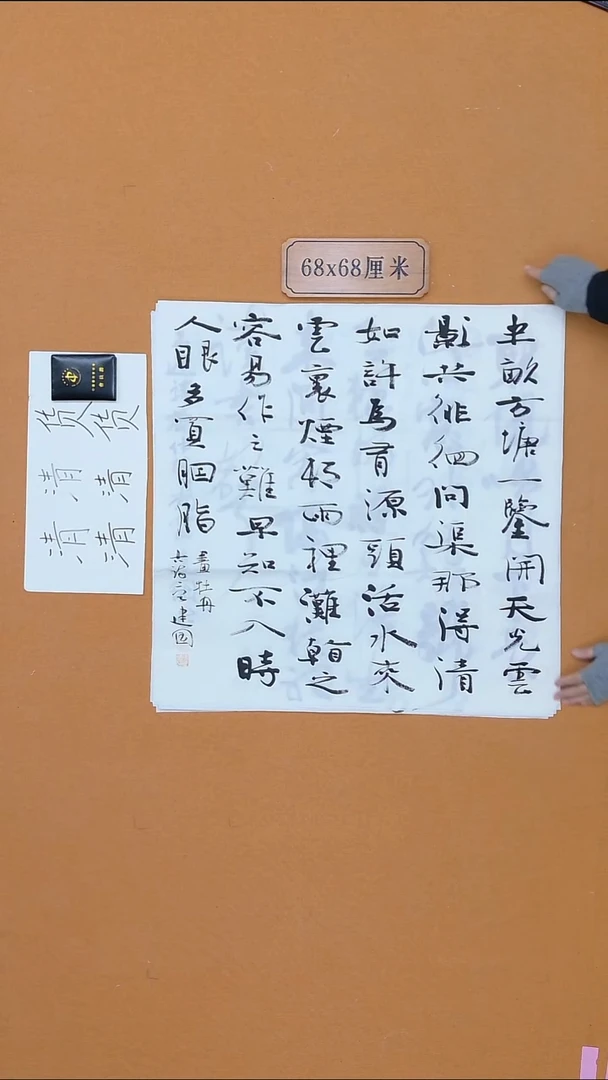 68x68厘米
半畝方塘一鑒開天光雲
影共徘徊問渠那得清
如許爲有源頭活水來
雲裏煙邨雨裡灘看之
容易作之難早知不入時
人眼多買胭脂
畫牡丹
建国
货清清
货清清